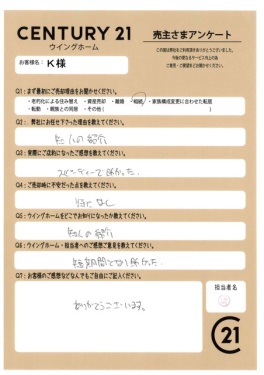 CENTURY 21
ウイングホーム
売主さまアンケート
この度は弊社をご利用頂きありがとうございました。
今後の更なるサービス向上の為
ご意見・ご要望をお聞かせください。
お客様名： K様
Q1：まず最初にご売却理由をお聞かせください。
・老朽化による住み替え ・資産売却 ・離婚 ・相続 ・家族構成変更に合わせた転居
・転勤 ・親族との同居 ・その他（
Q2： 弊社にお任せ下さった理由を教えてください。
知人の紹介
Q3：実際にご成約になったご感想を教えてください。
スピーディーで良かった。
Q4：ご売却時に不安だった点を教えてください。
特になし
Q5：ウイングホームをどこでお知りになったか教えてください。
知人の紹介
Q6：ウイングホーム・担当者へのご感想ご意見を教えてください。
短期間でなり良かった
Q7：お客様のご感想などなんでもご自由にご記入ください。
ありがとうございます。
担当者名
C21